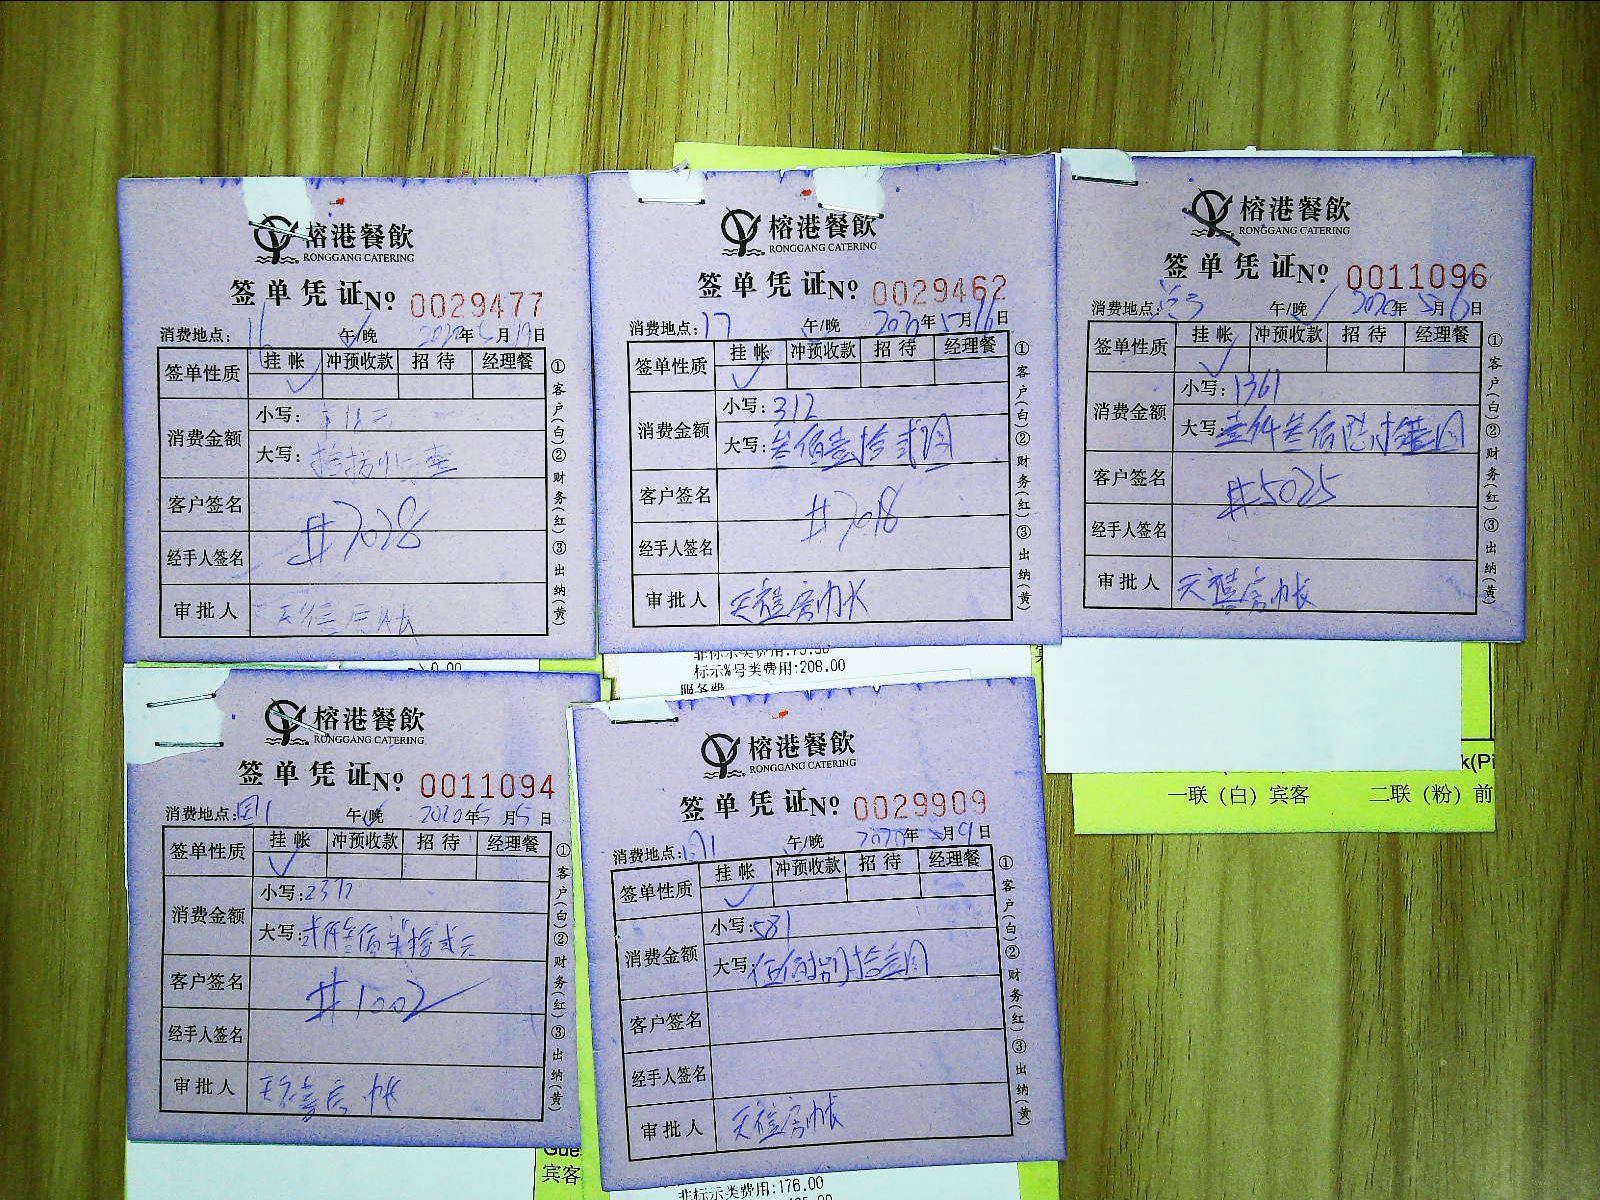 榕港餐飲
RONGGANG CATERING
签单凭证№ 0029477
消费地点: 16 午/晚 2020年5月19日
签单性质 挂帐 冲预收款 招待 经理餐
消费金额 小写:
大写:
客户签名 #7028
经手人签名
审批人
①客户(白)②财务(红)③出纳(黄)
榕港餐飲
RONGGANG CATERING
签单凭证№ 0029462
消费地点: 17 午/晚 2020年5月16日
签单性质 挂帐 冲预收款 招待 经理餐
消费金额 小写: 312
大写: 叁佰壹拾贰圆
客户签名 #7018
经手人签名
审批人 天禧房帐
①客户(白)②财务(红)③出纳(黄)
榕港餐飲
RONGGANG CATERING
签单凭证№ 0011096
消费地点: 午/晚 2020年5月6日
签单性质 挂帐 冲预收款 招待 经理餐
消费金额 小写: 1361
大写: 壹仟叁佰陆拾壹圆
客户签名 #5025
经手人签名
审批人 天禧房帐
①客户(白)②财务(红)③出纳(黄)
标示%号类费用:208.00
服务费
k(Pi
一联(白)宾客 二联(粉)前
榕港餐飲
RONGGANG CATERING
签单凭证№ 0011094
消费地点: 午/晚 2020年5月5日
签单性质 挂帐 冲预收款 招待 经理餐
消费金额 小写:
大写:
客户签名 #1002
经手人签名
审批人 天禧房帐
①客户(白)②财务(红)③出纳(黄)
榕港餐飲
RONGGANG CATERING
签单凭证№ 0029909
消费地点: 午/晚 2020年5月9日
签单性质 挂帐 冲预收款 招待 经理餐
消费金额 小写: 581
大写:
客户签名
经手人签名
审批人 天禧房帐
①客户(白)②财务(红)③出纳(黄)
宾客
非标示类费用:176.00